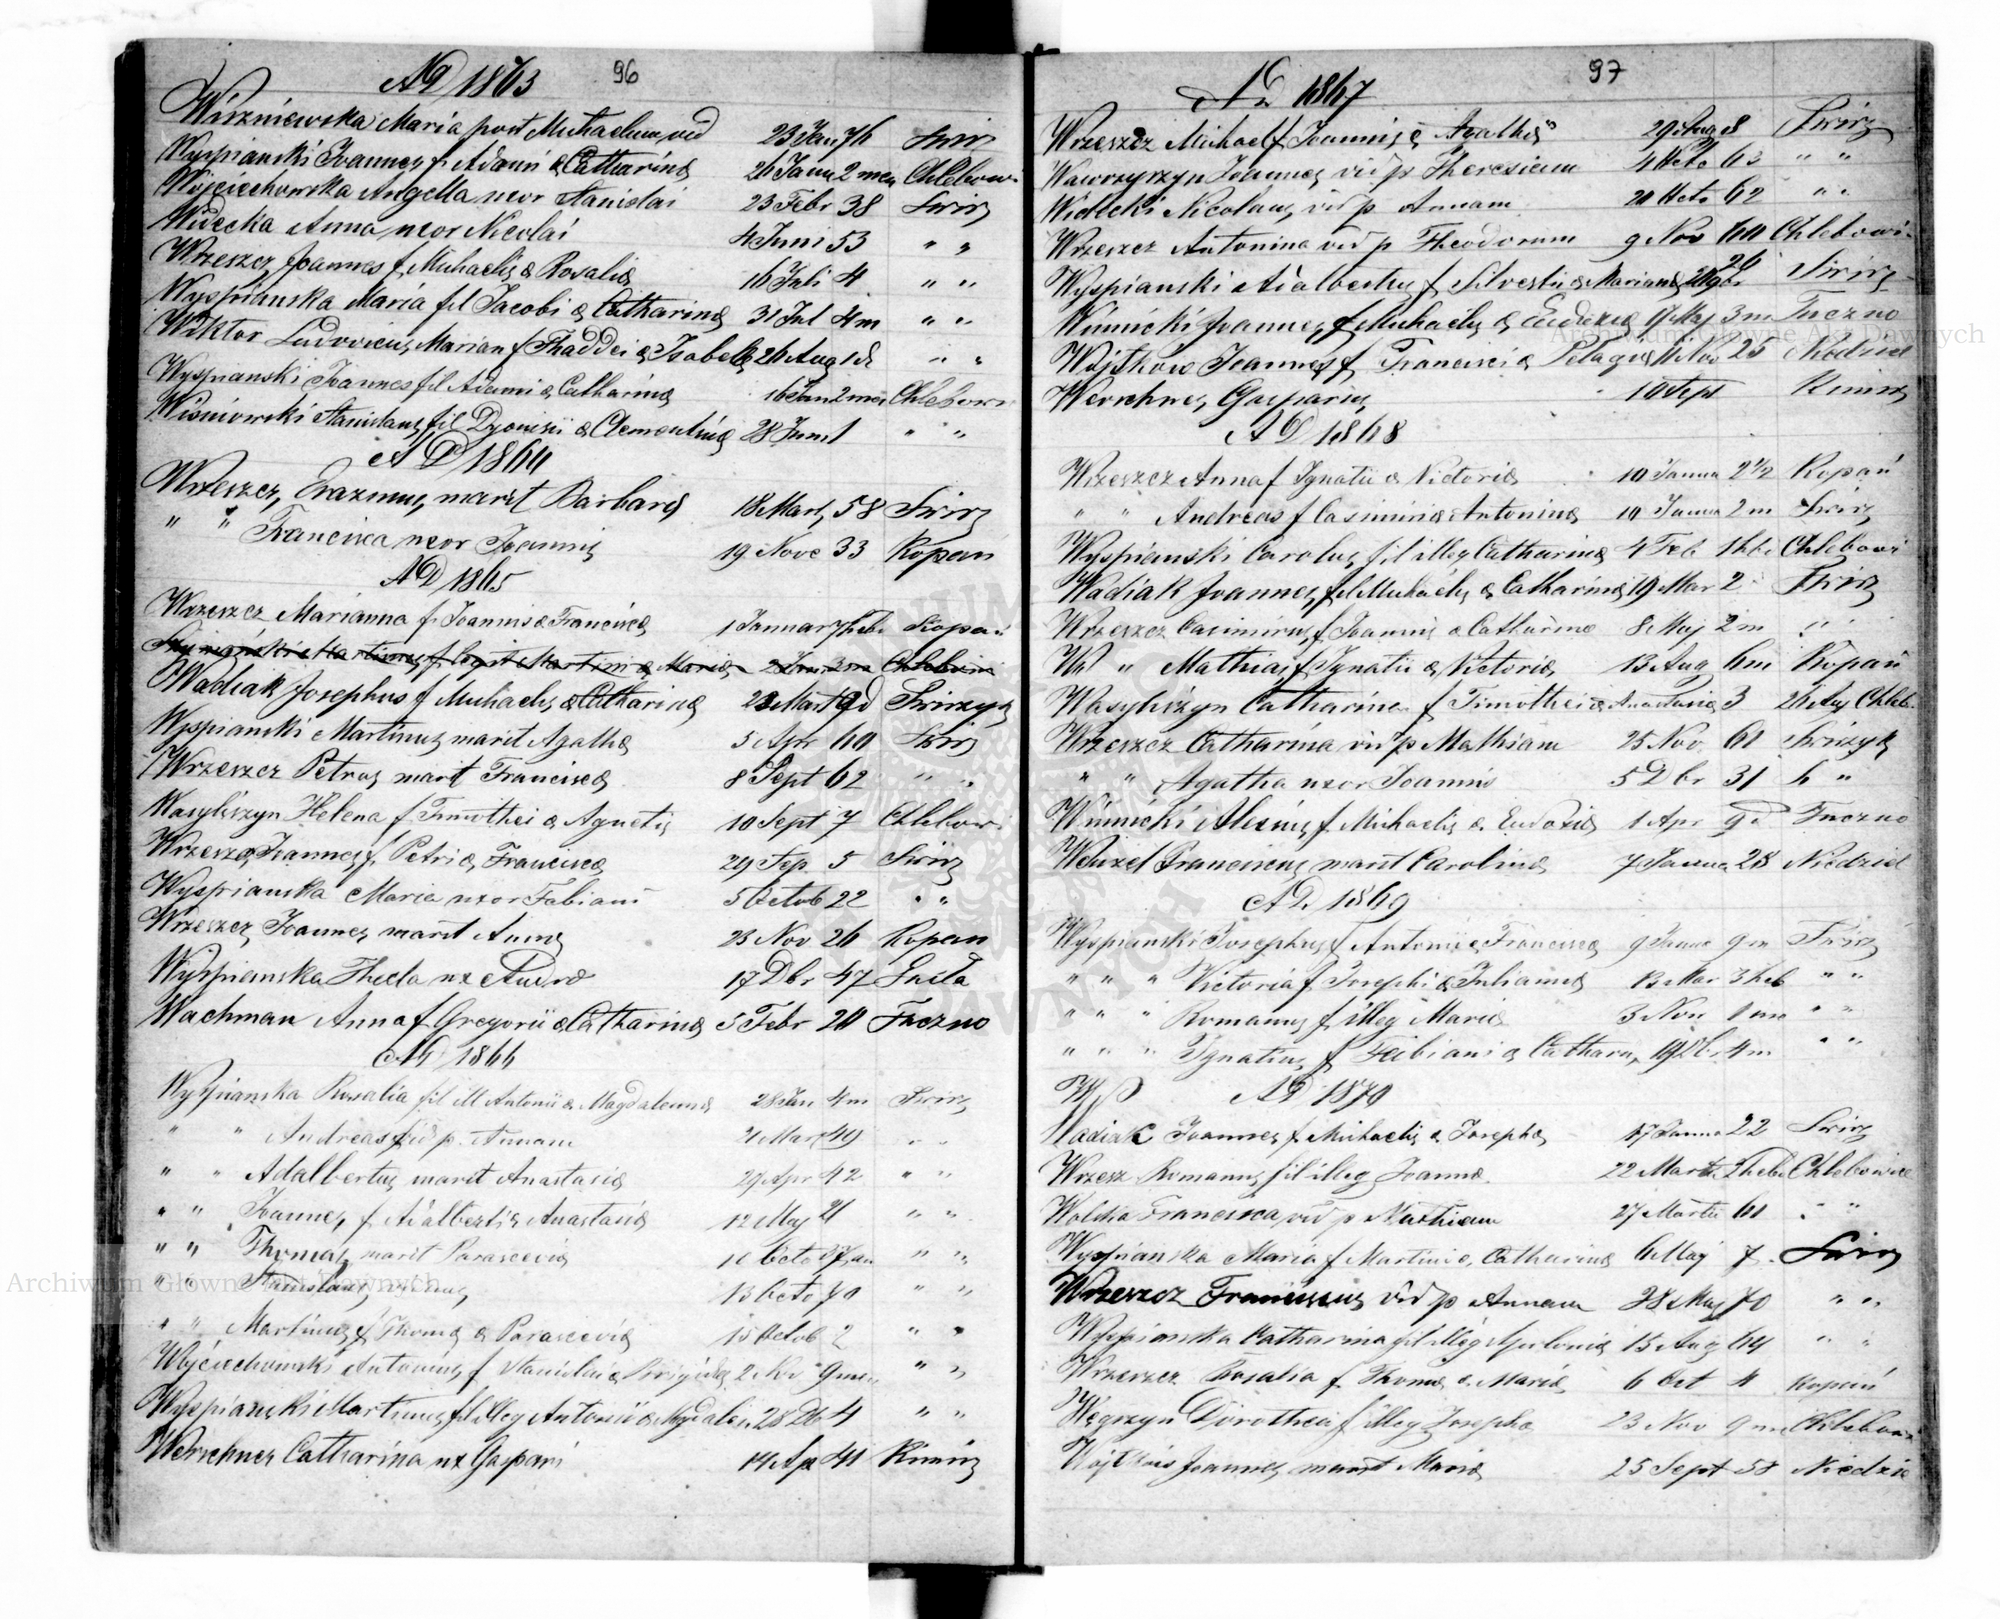 AD 1863 96
Wiszniewska Maria post Michaelem vid 23 Jan 76 Swirz
Wyspianski Joannes f. Adami & Catharinæ 26 Janu 2 men Chlebowi
Wojciechowska Angella uxor Stanislai 23 Febr 38 Swirz
Widecka Anna uxor Nicolai 4 Juni 53 " "
Wrzeszcz Joannes f. Michaelis & Rosaliæ 16 Juli 4 " "
Wyspianska Maria fil Jacobi & Catharinæ 31 Jul 4 m " "
Wiktor Ludovicus Marian f Thaddei & Isabellæ 26 Aug 1 d " "
Wyspianski Joannes fil Adami & Catharinæ 16 Jan 2 men Chlebowi
Wisniowski Stanislaus fil Dyonisii & Clementinæ 28 Juni 1 " "
AD 1864
Wrzeszcz Erazmus marit Barbaræ 18 Mart 58 Swirz
" " Francisca uxor Joannis 19 Nove 33 Kopań
AD 1865
Wrzeszcz Marianna f. Joannis & Franciscæ 1 Januar 7 heb Kopań
Wadiak Josephus f Michaelis & Catharinæ 23 Mart 9 d Swirzyk
Wyspianski Martinus marit Agathæ 5 Apr 60 Swirz
Wrzeszcz Petrus marit Franciscæ 8 Sept 62 " "
Wasylczyn Helena f Timothei & Agnetis 10 Sept 7 Chlebow
Wrzeszcz Joannes f. Petri & Franciscæ 29 Sep 5 Swirz
Wyspianska Maria uxor Fabiani 5 Octob 22 " "
Wrzeszcz Joannes marit Annæ 23 Nov 26 Kopań
Wyspianska Thecla ux Andre 17 Dbr 47
Wachman Anna f Gregorii & Catharinæ 5 Febr 20 Tuczno
AD 1866
Wyspianska Rosalia fil ill Antonii & Magdalenæ 28 Jan 4 m Swirz
" " Andreas vid p. Annam 21 Mar 49 " "
" " Adalbertus marit Anastasiæ 29 Apr 42 " "
" " Joannes f. Adalberti & Anastasiæ 12 Maj 21 " "
" " Thomas marit Parasceviæ Octo " "
" " Stanislaus 13 Octo 70 " "
" " Martinus f Thomæ & Parasceviæ 15 Octob 2 " "
Wojciechowski Antonius f Stanislai & Brigidæ 2 Nov 9 men " "
Wyspianski Martinus fil illeg Antonii & Magdalen 28 Db 4 " "
Werschner Catharina ux Gaspari 14 Ap 41 Kimirz
AD 1867 97
Wrzeszcz Michael f Joannis & Agathæ 29 Aug 8 Swirz
Wawrzyszyn Joannes vid p Theresiam 4 Octo 63 " "
Widecki Nicolaus vid p Annam 20 Octo 62 " "
Wrzeszcz Antonina vid p Theodorum 9 Nov 60 Chlebowi
Wyspianski Adalbertus f Silvestri & Mariannæ Swirz
Winnicki Joannes f Michaelis & Eudoxiæ 9 Maj 3 m Tuczno
Wojtkow Joannes f Francisci & Pelagiæ 11 Nov 25 Niedziel
Werschner Gasparus 10 Sept Kimirz
AD 1868
Wrzeszcz Anna f Ignatii & Victoriæ 10 Janua 2 1/2 Kopań
" " Andreas f Casimiri & Antoninæ 10 Janua 2 m Swirz
Wyspianski Carolus fil illeg Catharinæ 4 Feb 1 heb Chlebowi
Wadiak Joannes fil Michaelis & Catharinæ 19 Mar 2 Swirz
Wrzeszcz Casimirus f Joannis & Catharinæ 8 Maj 2 m " "
W " Mathias f Ignatii & Victoriæ 13 Aug 6 m Kopań
Wasylczyn Catharina f Timothei & Anastasiæ 3 20 Aug Chleb
Wrzeszcz Catharina vid p Mathiam 25 Nov 60 Swirzyk
" " Agatha uxor Joannis 5 Dbr 31 " "
Winnicki Alexius f Michaelis & Eudoxiæ 1 Apr 9 d Tuczno
Wenzel Franciscus marit Carolinæ 7 Janua 28 Niedziel
AD 1869
Wyspianski Josephus f Antonii & Franciscæ 9 Janua 9 m Swirz
" " " Victoria f Josephi & Juliannæ 13 Mar 3 heb " "
" " " Romanus f illeg Mariæ 3 Nov 1 m " "
" " " Ignatius f Fabiani & Cathari 19 Dbr 4 m " "
AD 1870
Wadiak Joannes f Michaelis & Josephæ 17 Janua 22 Swirz
Wrzesz Romanus fil illeg Joannæ 22 Martii heb Chlebowice
Wolska Francisca vid p Mathiam 27 Martii 60 " "
Wyspianska Maria f Martini & Catharinæ 6 Maj 7 Swirz
Wrzeszcz Franciscus vid p Annam 28 Maj 70 " "
Wyspianska Catharina fil illeg Apoloniæ 15 Aug " "
Wrzeszcz Rosalia f Thomæ & Mariæ 6 Oct 4 Kopań
Węgrzyn Dorothea f illeg Josepha 23 Nov 9 m Chlebowi
Wojtkow Joannes marit Mariæ 25 Sept 58 Niedzie
Archiwum Główne Akt Dawnych
Archiwum Główne Akt Dawnych